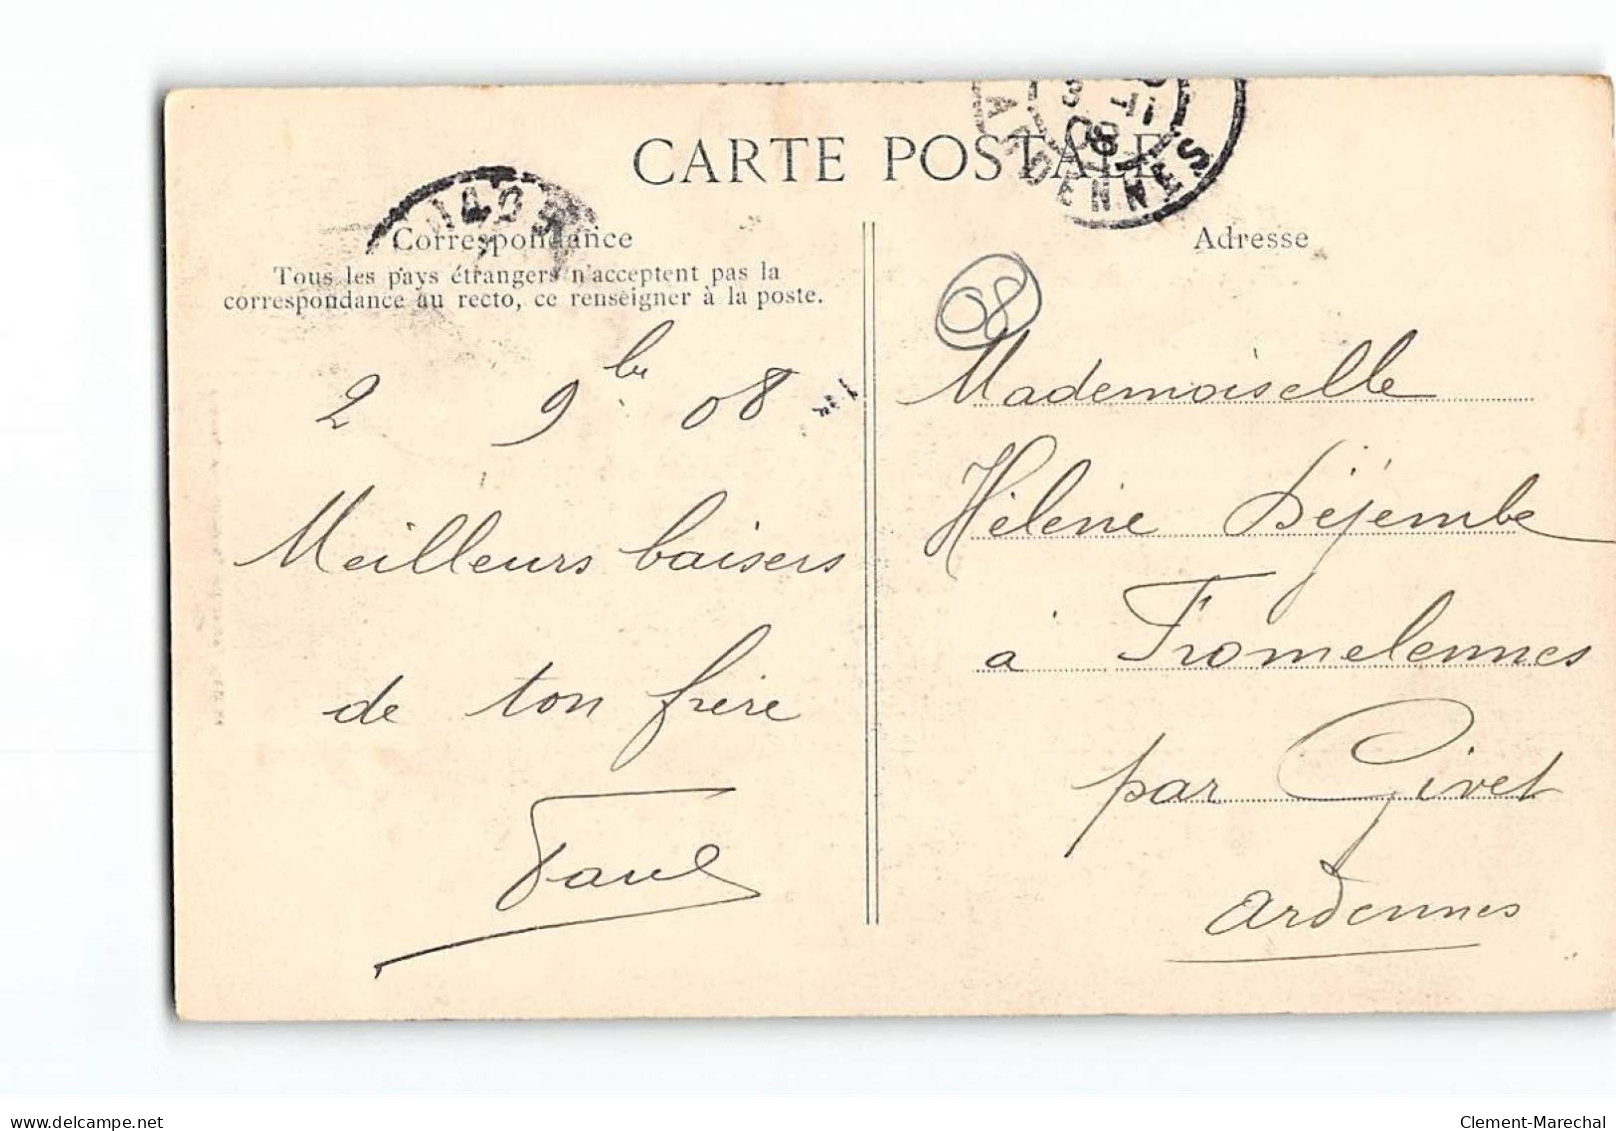 CARTE POSTALE
ARDENNES
08
Correspondance
Tous les pays étrangers n'acceptent pas la
correspondance au recto, ce renseigner à la poste.
2 9bre 08
Meilleurs baisers
de ton frère
Paul
Adresse
08
Mademoiselle
Hélène Déjembe
à Fromelennes
par Givet
Ardennes
www.delcampe.net
Clement-Marechal